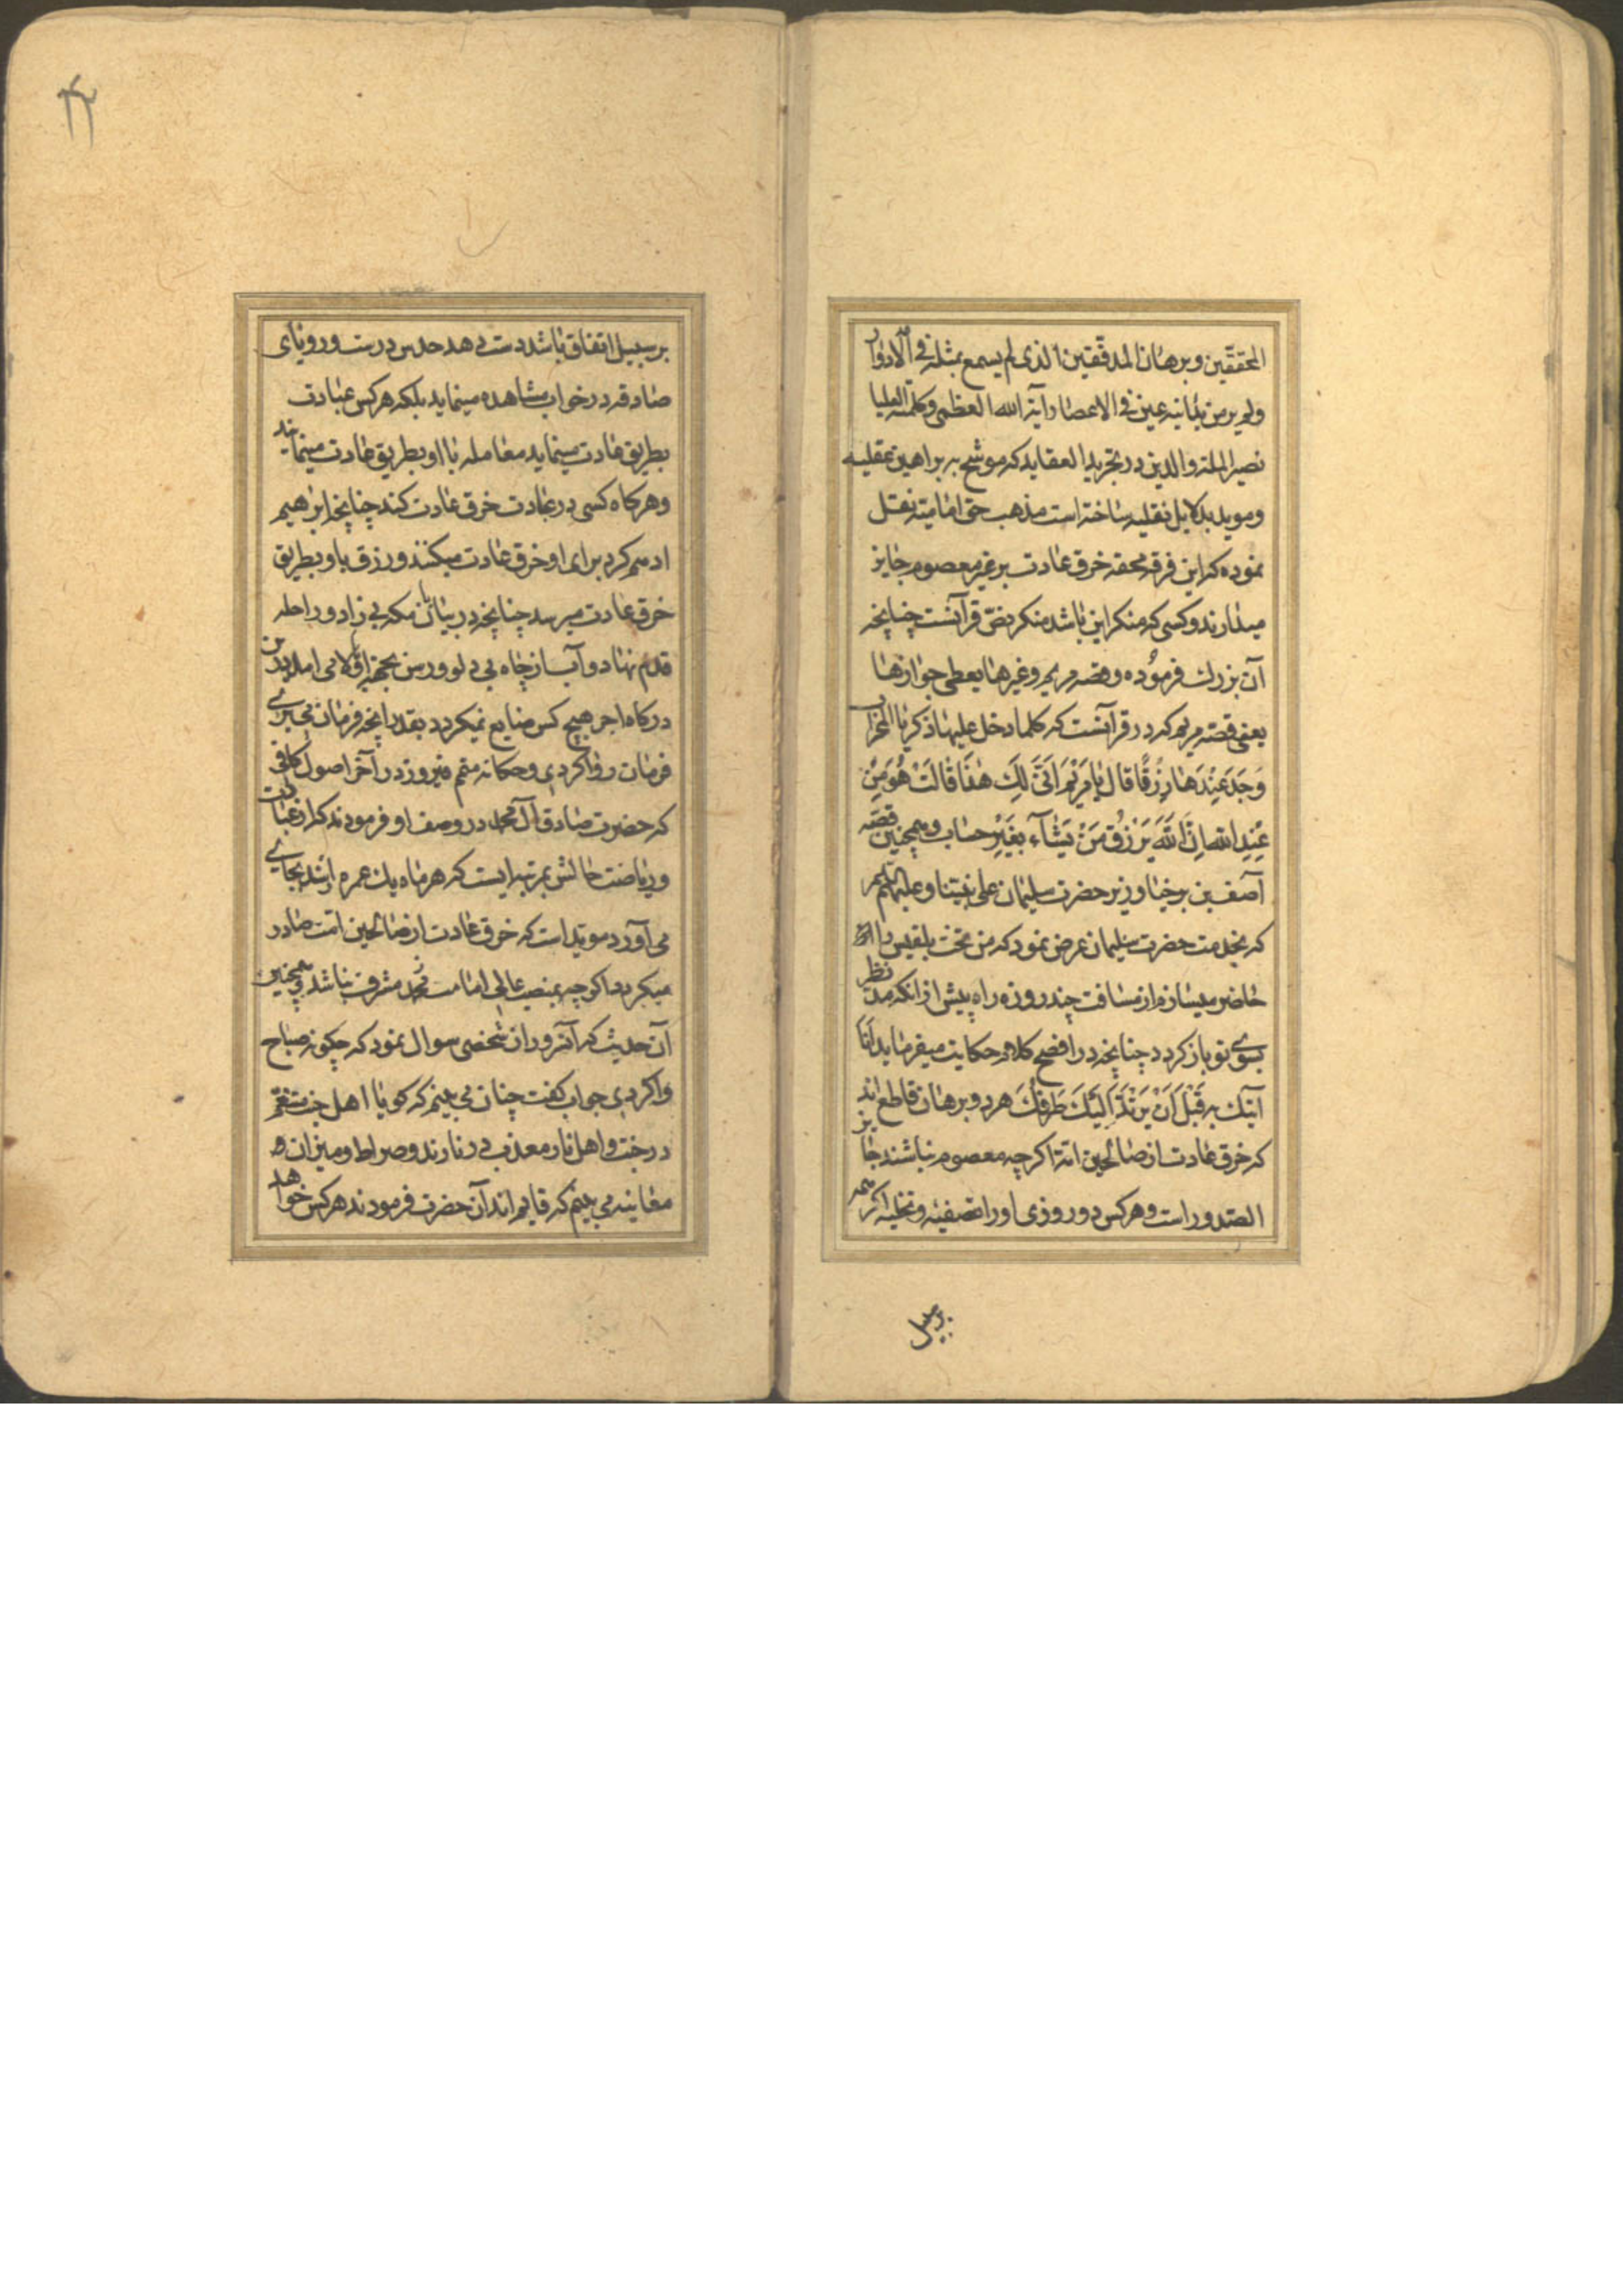 المحققین و برهان المدققین الذی لم یسمع بمثله فی الادوار
ولم یر من یدانیه عین فی الاعصار آیة الله العظمی و کلمته العلیا
نصیر الملة والدین در تجرید العقاید که موشح ببراهین عقلیه
و موید بدلایل نقلیه ساخته است مذهب حق امامیه نقل
نموده که این فرقه محقه خرق عادت بر غیر معصوم جایز
میدارند و کسی که منکر این باشد منکر نص قرآنست چنانچه
آن بزرک فرموده و قصه مریم و غیرها یعطی جوازها
یعنی قصه مریم که در قرآنست که کلما دخل علیها زکریا المحراب
وَجَدَ عِنْدَهَا رِزْقًا قَالَ یَا مَرْیَمُ اَنّیٰ لَكِ هٰذَا قَالَتْ هُوَ مِنْ
عِنْدِ اللهِ اِنَّ اللهَ یَرْزُقُ مَنْ یَشَآءُ بِغَیْرِ حِسَاب و همچنین قصه
آصف بن برخیا وزیر حضرت سلیمان علی نبینا و علیه
که بخدمت حضرت سلیمان عرض نمود که من تخت بلقیس را
حاضر میسازم از مسافت چند روزه راه پیش از انکه مد نظر
بسوی تو باز کردد چنانچه در افصح کلام حکایت میفرماید اَنَا
آتیك به قَبْلَ اَنْ یَرْتَدَّ اِلَیْكَ طَرْفُكَ هر دو برهان قاطع اند
که خرق عادت از صالحین امة اکرچه معصوم نباشند جایز
الصدور است و هر کس دو روزی او را تصفیه و تخلیه اکرچه
بر سبیل
بر سبیل اتفاق باشد دست دهد حدس درست و رویای
صادقه در خواب مشاهده مینماید بلکه هر کس عبادت
بطریق عادت مینماید معامله با او بطریق عادت مینمایند
و هرکاه کسی در عبادت خرق عادت کند چنانچه ابرهیم
ادهم کرد برای او خرق عادت میکنند و رزق باو بطریق
خرق عادت میرسد چنانچه در بیابان مکه بی زاد و راحله
قدم نهاد و آب از چاه بی دلو و رسن بجهة او بالا می امد
درکاه اجر هیچ کس ضایع نمیکردد بقدر انچه فرمان می بری
فرمان روا کردی و حکایة متمم فیروز در آخر اصول کافی
که حضرت صادق آل محمد در وصف او فرمودند که از عبادت
و ریاضت حالش بمرتبه ایست که هر ماه یك عمره
می آورد موید است که خرق عادت از صالحین امت صادر
میکردد اکرچه بمنصب عالی امامت مشرف نباشد و همچنین
آن حدیث که آنسرور از شخصی سوال نمود که چکونه صباح
واکردی جواب کفت چنان می بینم که کویا اهل جنت متنعم
در جنت و اهل نار معذب در نارند و صراط و میزان
معاینه می بینم که قایم اند آن حضرت فرمودند هر کس خواهد